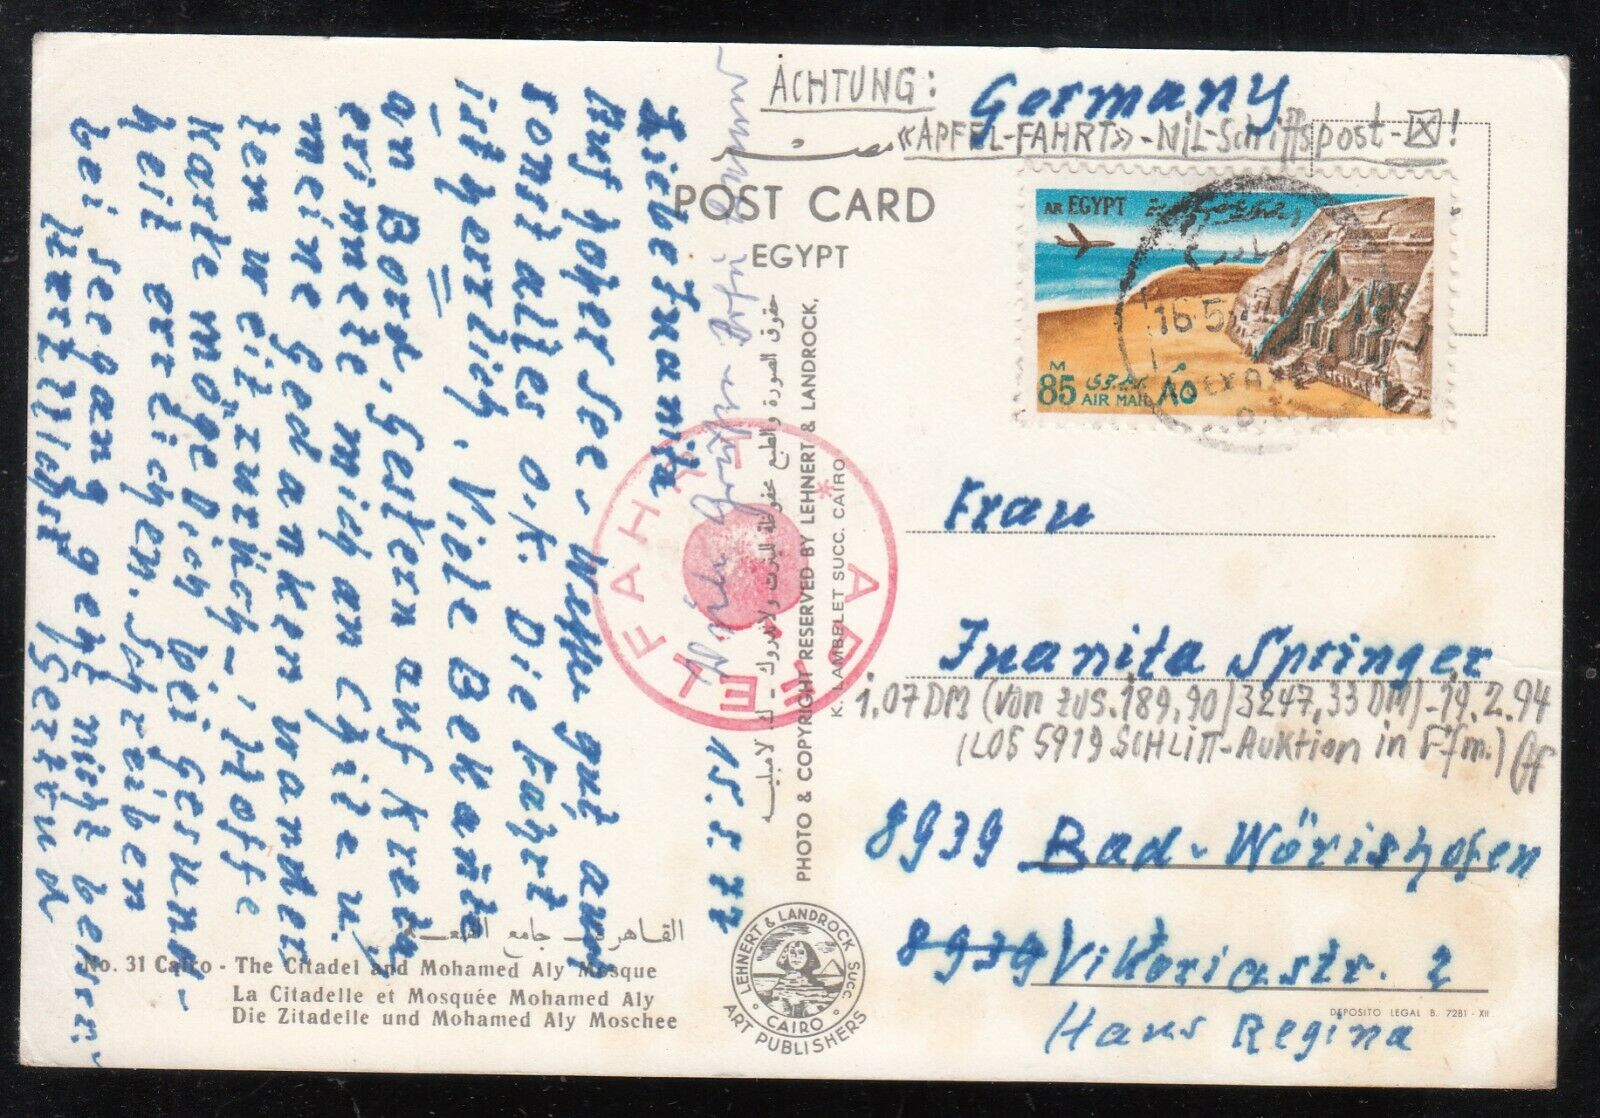 ACHTUNG: Germany
«APFEL-FAHRT»-Nil-Schiffspost-⊠!
POST CARD
EGYPT
AR EGYPT
M
85
AIR MAIL
٨٥
16.5
APFELFAHRT
Liebe Juanita
Auf hoher See - Wetter gut auch
sonst alles o.k. Die Fahrt
ist herrlich, Viele Bekañte
an Bord, Gestern auf Kreta
erinnerte mich an Chile u.
meine Gedanken wander-
ten weit zurück - Hoffe
Karte möge Dich bei Gesund-
heit erreichen. Schreiben
bei Seegang geht nicht besser
herzlichst
15.5.77
حقوق الصورة والطبع محفوظة للينرت ولاندروك - ك. لامبليه
PHOTO & COPYRIGHT RESERVED BY LEHNERT & LANDROCK,
K. LAMBELET SUCC. CAIRO
Frau
Juanita Springer
1,07DM (von zus. 189,90/3247,33 DM) - 19.2.94
(LOS 5919 SCHLITT-Auktion in Ffm.)
8939 Bad-Wörishofen
8939 Viktoriastr. 2
Haus Regina
القاهرة - جامع القلعة
No. 31 Cairo - The Citadel and Mohamed Aly Mosque
La Citadelle et Mosquée Mohamed Aly
Die Zitadelle und Mohamed Aly Moschee
LEHNERT & LANDROCK SUCC.
CAIRO
ART PUBLISHERS
DEPOSITO LEGAL B. 7281 - XII